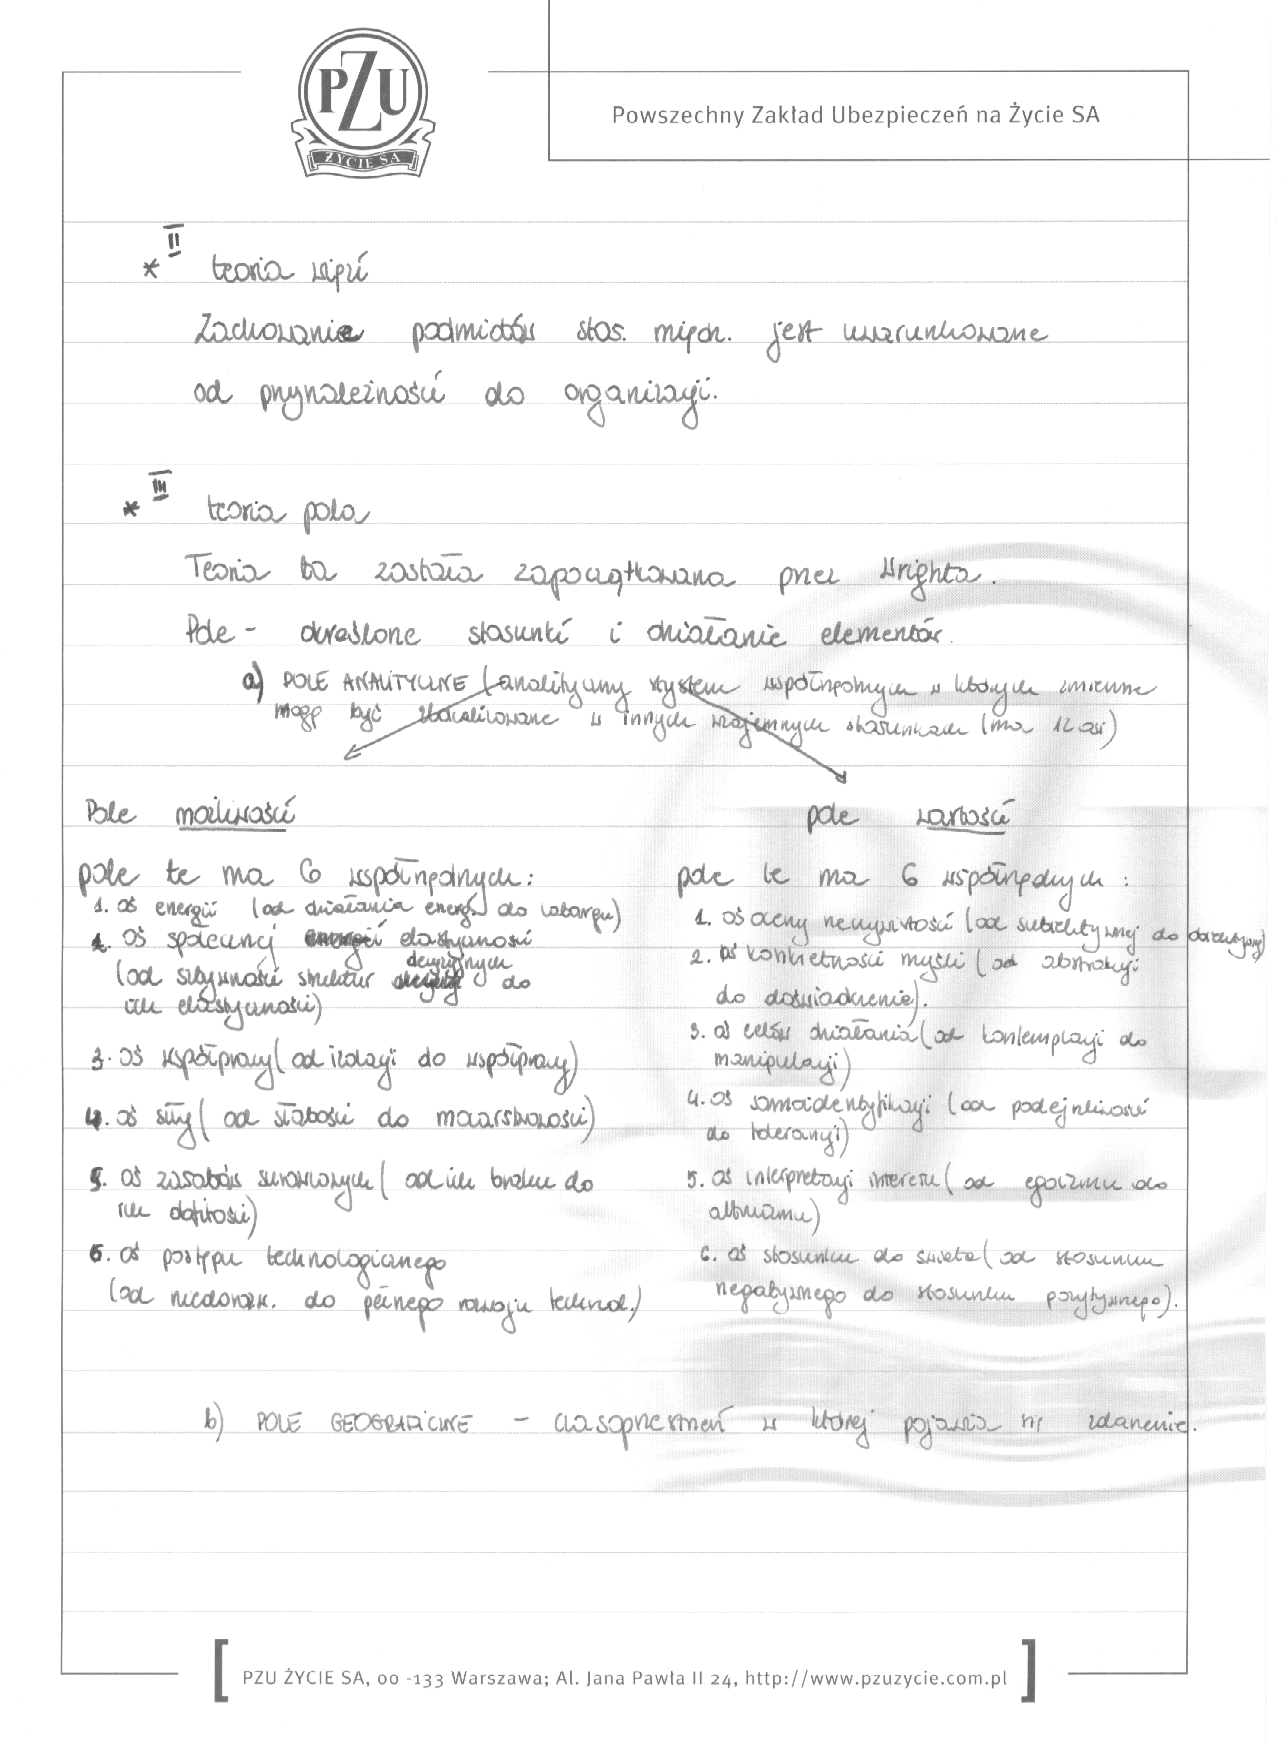 PZU
ŻYCIE SA
Powszechny Zakład Ubezpieczeń na Życie SA
* II teoria więzi
Zachowanie podmiotów stos. międz. jest uwarunkowane
od przynależności do organizacji.
* III teoria pola
Teoria ta została zapoczątkowana przez Wrighta.
Pole - określone stosunki i działanie elementów.
a) POLE ANALITYCZNE (analityczny system współrzędnych w których zmienne
mogą być zlokalizowane w innych wzajemnych stosunkach (ma 12 osi)
Pole możliwości
pole te ma 6 współrzędnych:
1. oś energii (od działania energ. do letargu)
2. oś społecznej elastyczności
(od sztywności struktur decyzyjnych do
ich elastyczności)
3. oś współpracy (od izolacji do współpracy)
4. oś siły (od słabości do mocarstwowości)
5. oś zasobów surowcowych (od ich braku do
ich obfitości)
6. oś postępu technologicznego
(od niedorozw. do pełnego rozwoju technol.)
pole wartości
pole te ma 6 współrzędnych:
1. oś oceny rzeczywistości (od subiektywnej do obiektywnej)
2. oś konkretności myśli (od abstrakcji
do doświadczenie).
3. oś celów działania (od kontemplacji do
manipulacji)
4. oś samoidentyfikacji (od podejrzliwości
do tolerancji)
5. oś interpretacji interesu (od egoizmu do
altruizmu)
6. oś stosunku do świata (od stosunku
negatywnego do stosunku pozytywnego).
b) POLE GEOGRAFICZNE - czasoprzestrzeń w której pojawia się zdarzenie.
[ PZU ŻYCIE SA, 00 -133 Warszawa; Al. Jana Pawła II 24, http://www.pzuzycie.com.pl ]